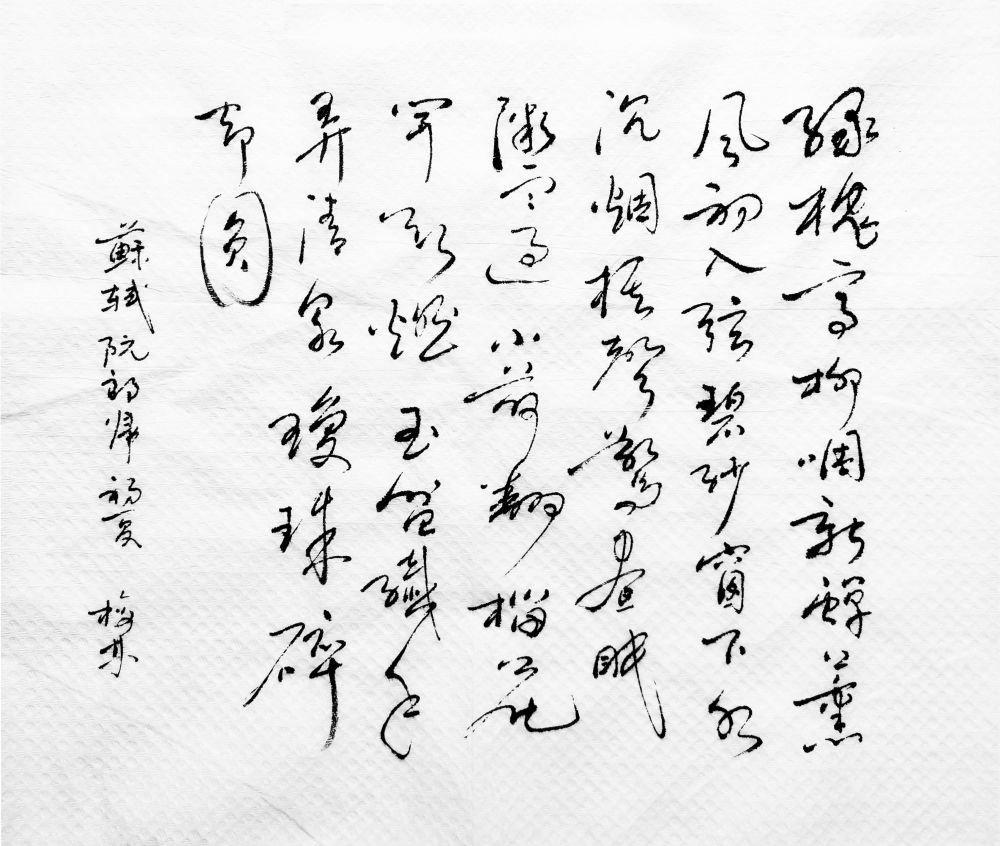 緑槐高柳咽新蟬薰
風初入弦碧紗窗下水
沉烟棋聲驚晝眠
微雨過小荷翻榴花
開欲燃玉盆纖手
弄清泉瓊珠碎
却圓
蘇軾阮郎歸初夏